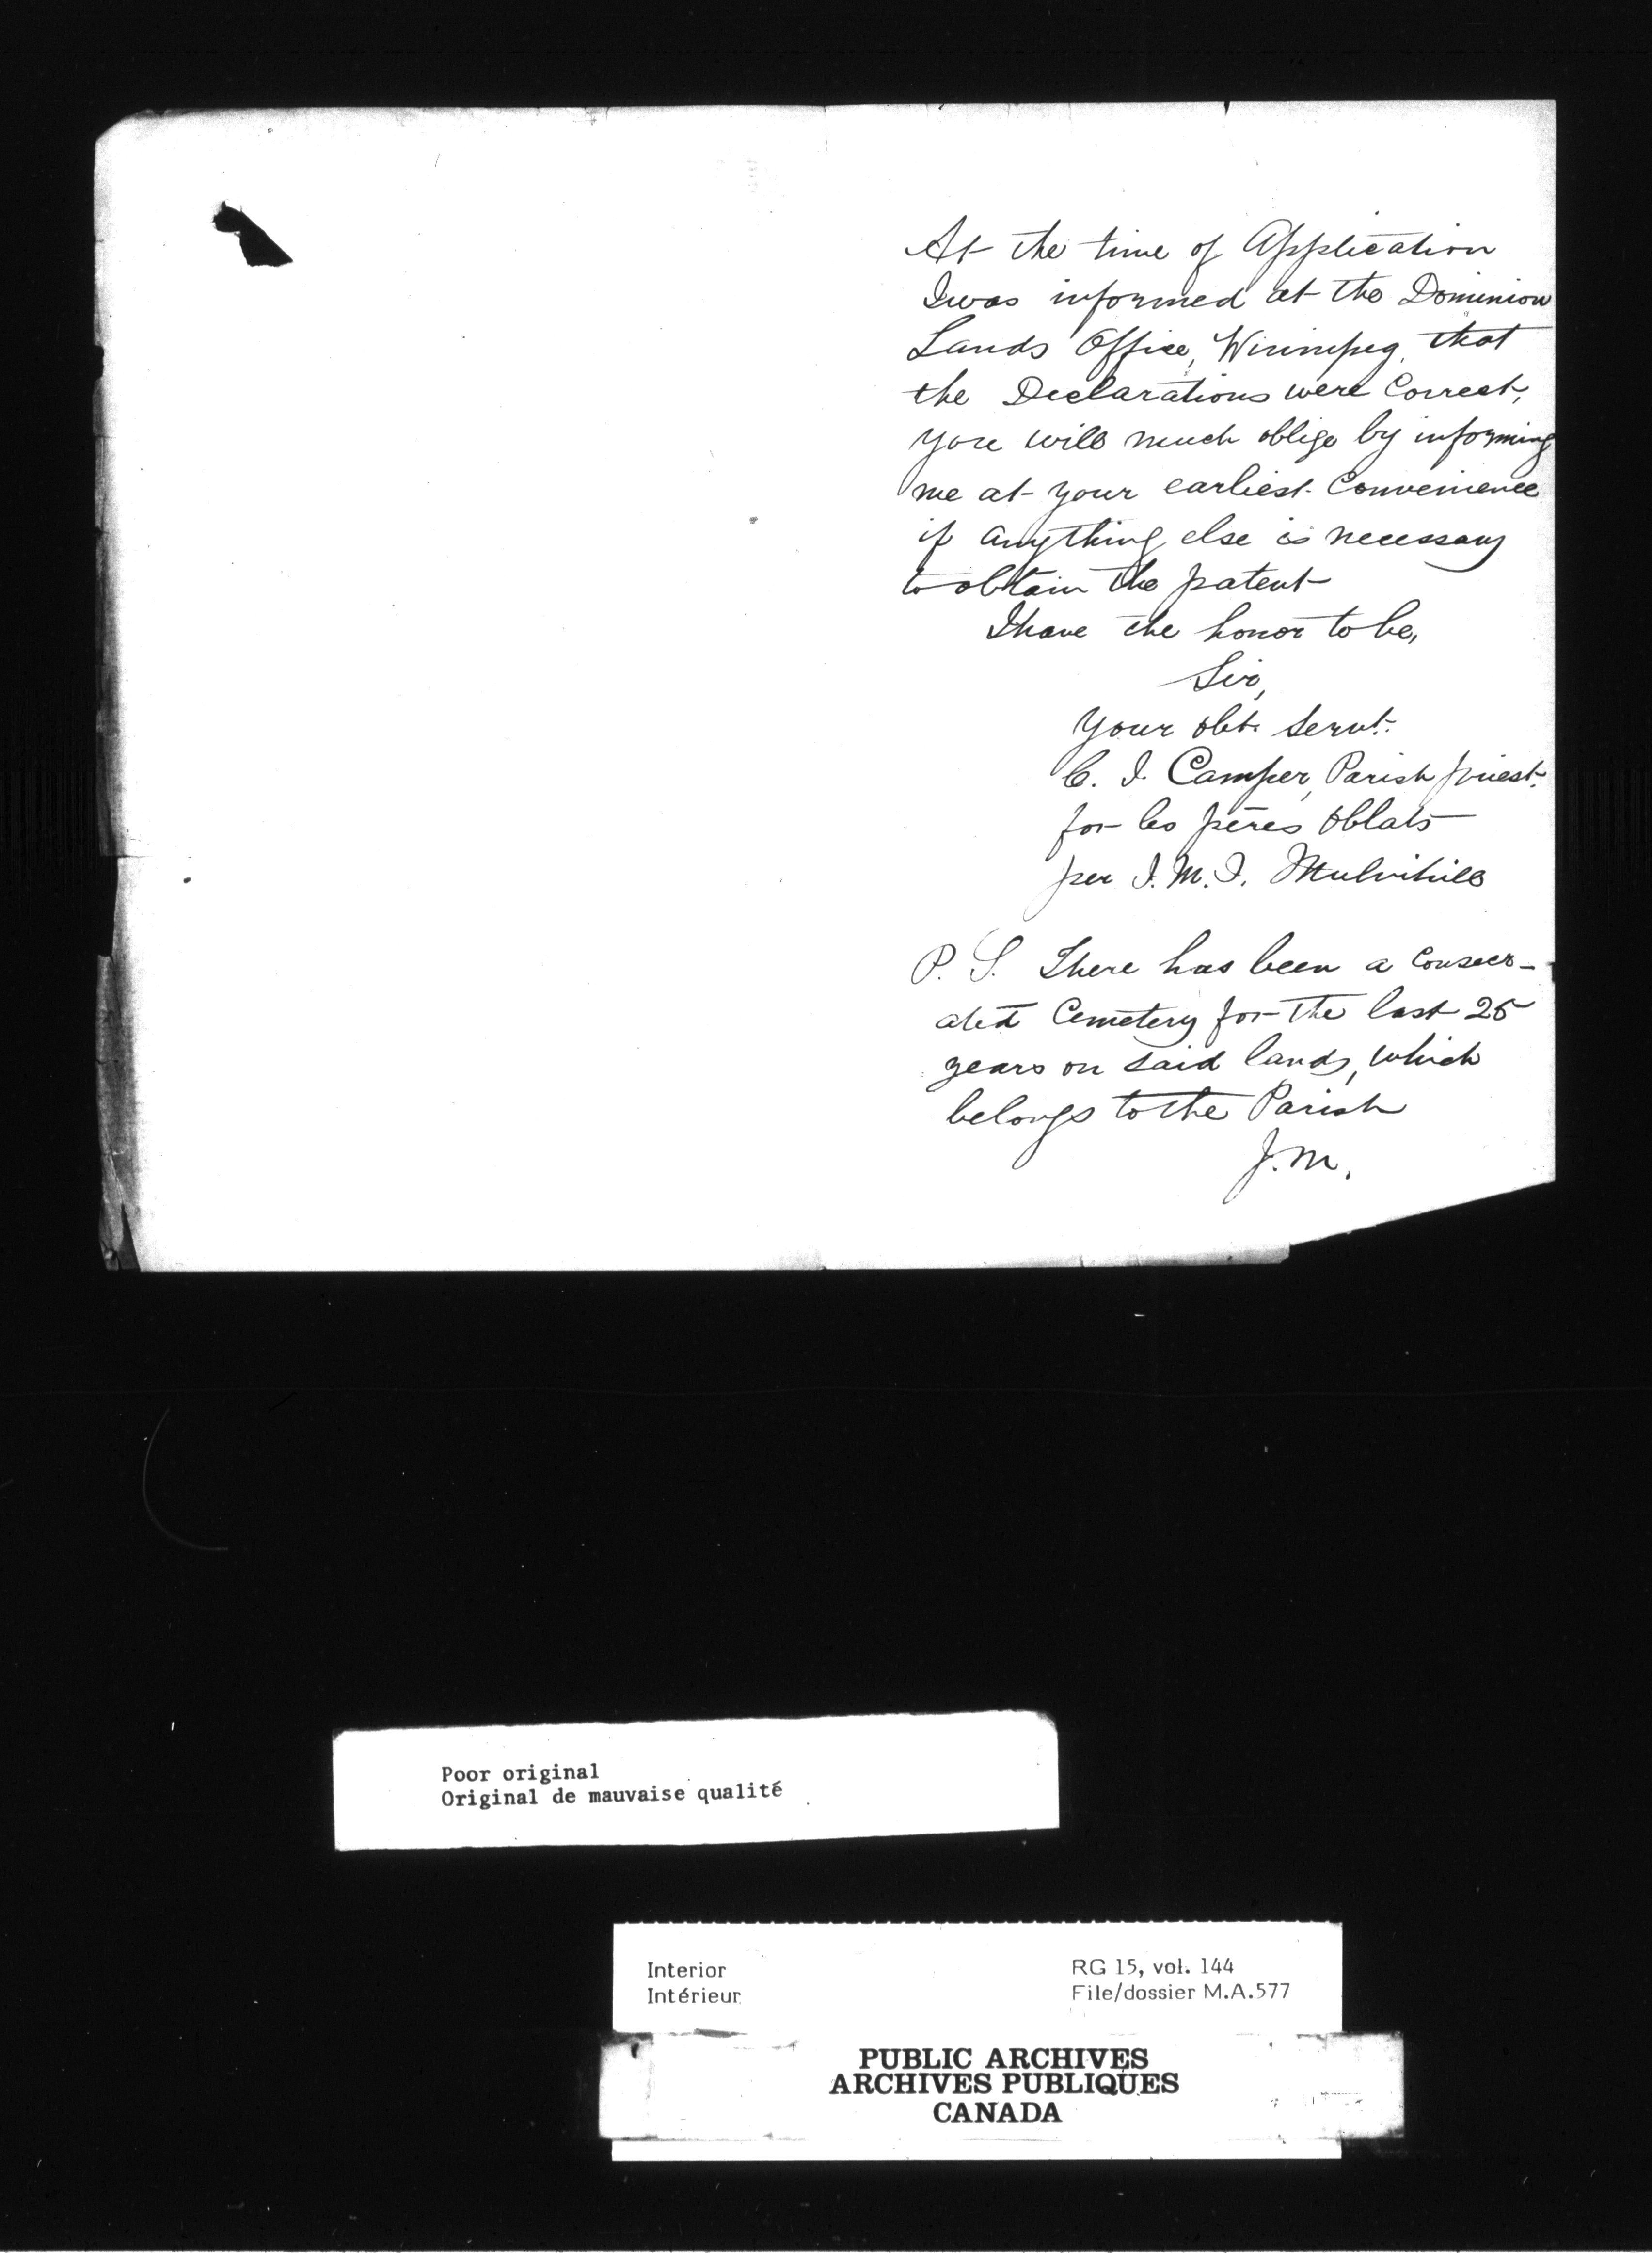 At the time of Application
I was informed at the Dominion
Lands Office, Winnipeg, that
the Declarations were Correct,
you will much oblige by informing
me at your earliest Convenience
if anything else is necessary
to obtain the patent
I have the honor to be,
Sir,
Your obt. Servt.
C. J. Camper, Parish priest.
for les pères Oblats
per J. M. J. Mulvihill
P. S. There has been a Consecr-
ated Cemetery for the last 25
years on said lands, which
belongs to the Parish
J. M.
Poor original
Original de mauvaise qualité
Interior
Intérieur
RG 15, vol. 144
File/dossier M.A.577
PUBLIC ARCHIVES
ARCHIVES PUBLIQUES
CANADA